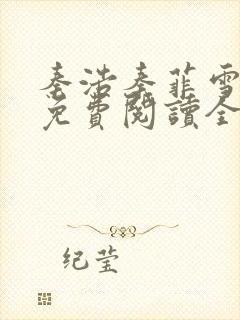 秦浩秦菲雪
免費閱讀全
纪莹